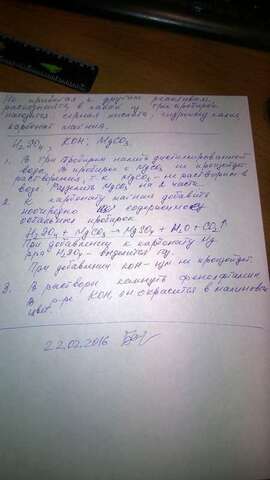 Не прибегая к другим реактивам,
распознайте в какой из трёх пробирок
находятся серная кислота, гидроксид калия,
карбонат магния.
H₂SO₄, KOH; MgCO₃
1. В три пробирки налить дистиллированной
воды. В пробирке с MgCO₃ не произойдет
растворения, т.к MgCO₃ - не растворим в
воде. Разделить MgCO₃ на 2 части.
2. К карбонату магния добавить
поочередно содержимое
остальных пробирок
H₂SO₄ + MgCO₃ → MgSO₄ + H₂O + CO₂↑
При добавлении к карбонату Mg
р-ра H₂SO₄ - выделится газ.
При добавлении KOH - не произойдет.
3. В растворы капнуть фенолфталеин
В р-ре KOH, он окрасится в малиновый
цвет.
22.02.2016